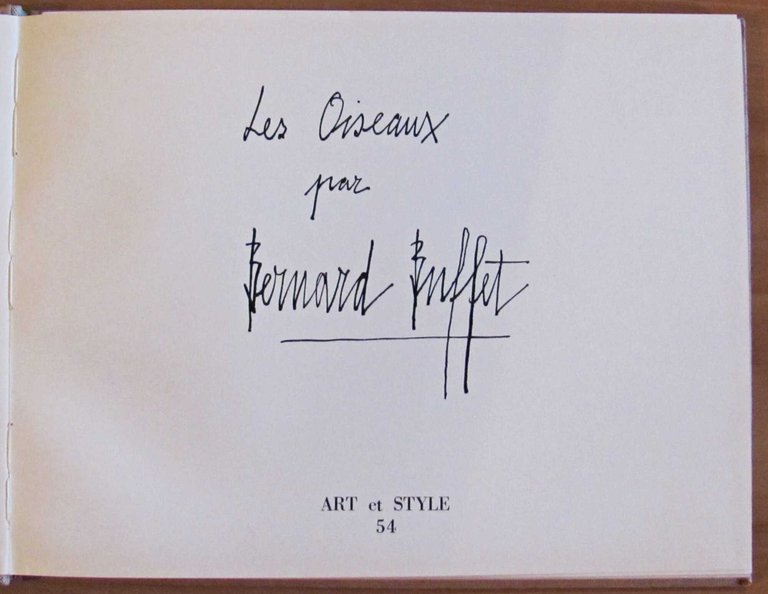 Les Oiseaux
par
Bernard Buffet
ART et STYLE
54